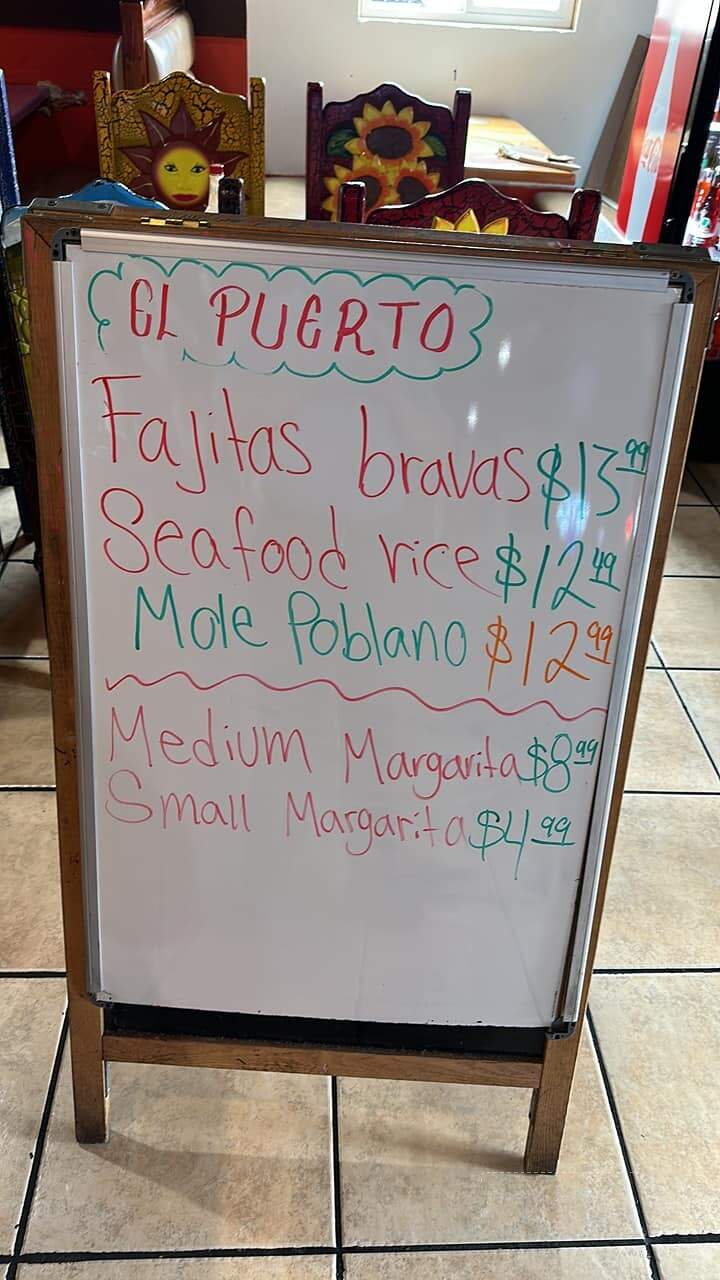 EL PUERTO
Fajitas bravas $13.99
Seafood rice $12.49
Mole Poblano $12.99
Medium Margarita $8.99
Small Margarita $4.99